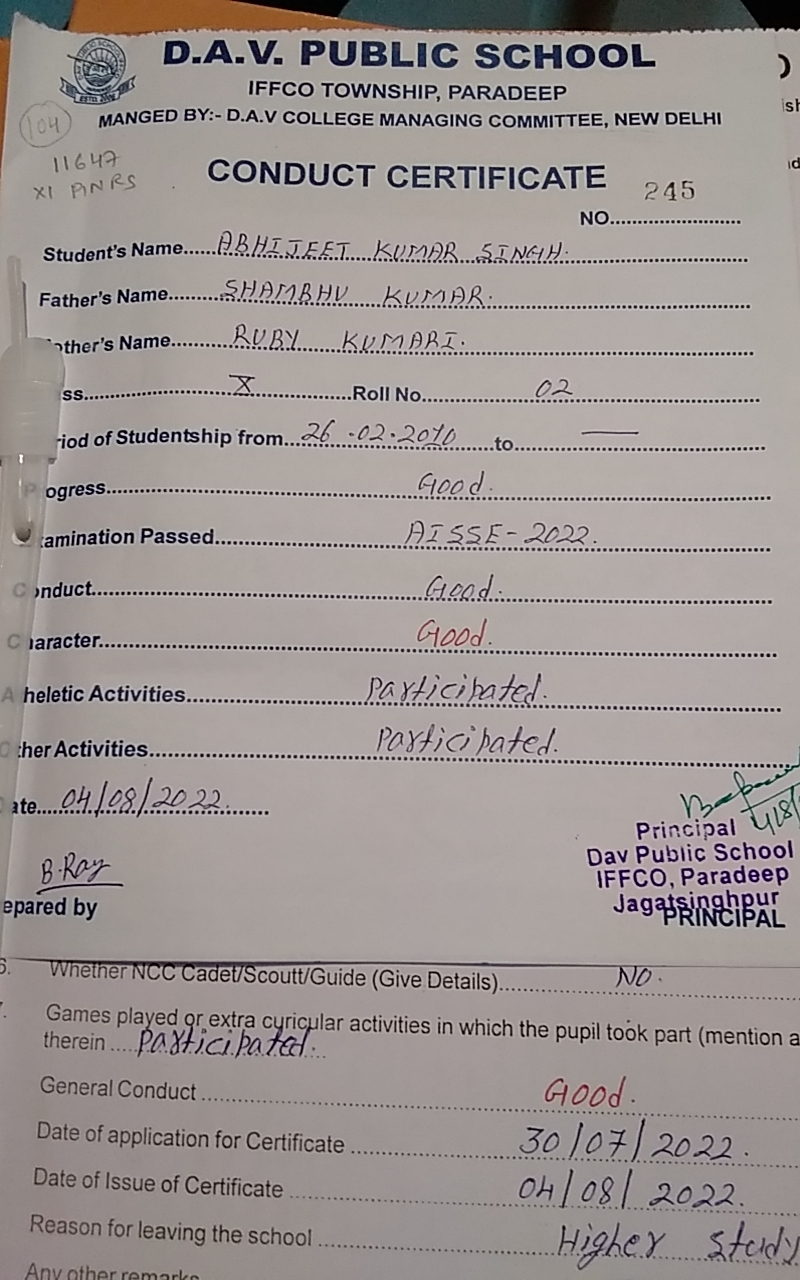 D.A.V. PUBLIC SCHOOL
IFFCO TOWNSHIP, PARADEEP
MANGED BY:- D.A.V COLLEGE MANAGING COMMITTEE, NEW DELHI
104
11647
XI
CONDUCT CERTIFICATE
245
NO........................
Student's Name......ABHIJEET KUMAR SINGH.
Father's Name.........SHAMBHU KUMAR.
other's Name.........RUBY KUMARI.
ss..........X..........Roll No..........02
riod of Studentship from...26.02.2010...to...—
Progress..........Good.
amination Passed..........AISSE-2022.
Conduct..........Good.
Character..........Good.
Atheletic Activities..........Participated.
Other Activities..........Participated.
ate....04/08/2022.
Principal
Dav Public School
IFFCO, Paradeep
Jagatsinghpur
PRINCIPAL
B.Ray
epared by
6. Whether NCC Cadet/Scoutt/Guide (Give Details)..........NO.
7. Games played or extra curicular activities in which the pupil took part (mention a
therein ....Participated.
General Conduct ..........Good.
Date of application for Certificate ..........30/07/2022.
Date of Issue of Certificate ..........04/08/2022.
Reason for leaving the school ..........Higher study
Any other remarks